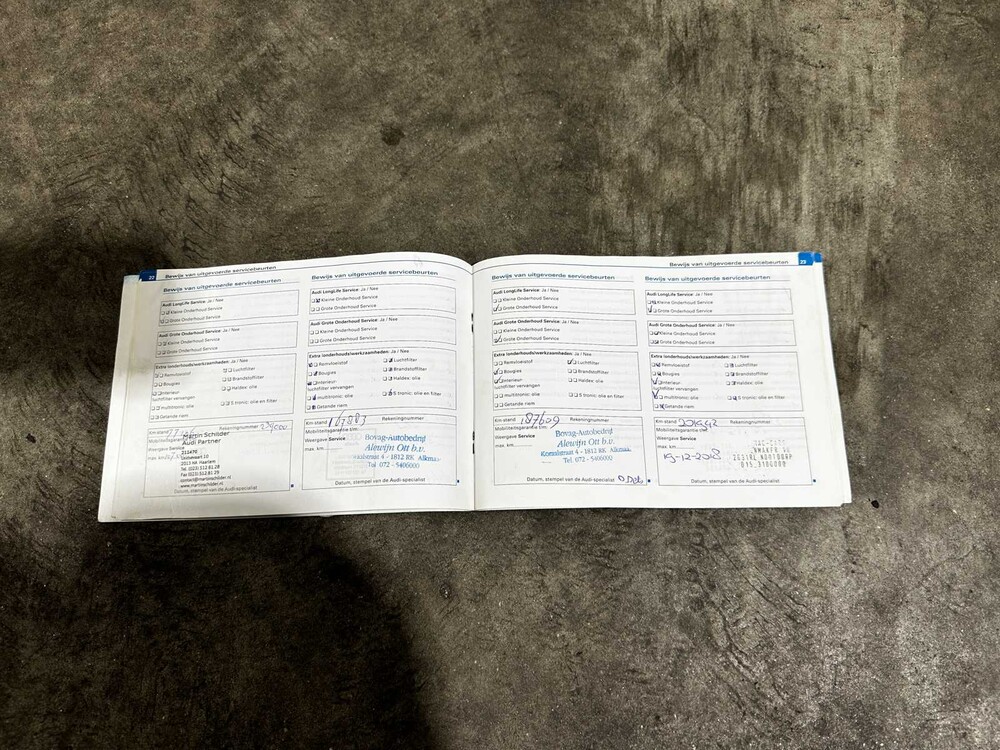 22 Bewijs van uitgevoerde servicebeurten
Bewijs van uitgevoerde servicebeurten
Audi LongLife Service: Ja / Nee
Kleine Onderhoud Service
Grote Onderhoud Service
Audi Grote Onderhoud Service: Ja / Nee
Kleine Onderhoud Service
Grote Onderhoud Service
Extra (onderhouds)werkzaamheden: Ja / Nee
Remvloeistof
Luchtfilter
Bougies
Brandstoffilter
Interieur-
luchtfilter vervangen
Haldex: olie
multitronic: olie
S tronic: olie en filter
Getande riem
Km-stand
Rekeningnummer
Mobiliteitsgarantie t/m:
Weergave Service
Martin Schilder
Audi Partner
2013 HA Haarlem
Tel. (023) 512 61 28
Fax (023) 512 61 29
contact@martinschilder.nl
www.martinschilder.nl
Datum, stempel van de Audi-specialist
Bewijs van uitgevoerde servicebeurten
Audi LongLife Service: Ja / Nee
Kleine Onderhoud Service
Grote Onderhoud Service
Audi Grote Onderhoud Service: Ja / Nee
Kleine Onderhoud Service
Grote Onderhoud Service
Extra (onderhouds)werkzaamheden: Ja / Nee
Remvloeistof
Luchtfilter
Bougies
Brandstoffilter
Interieur-
luchtfilter vervangen
Haldex: olie
multitronic: olie
S tronic: olie en filter
Getande riem
Km-stand 167883 Rekeningnummer
Mobiliteitsgarantie t/m:
Weergave Service
max. km
Bovag-Autobedrijf
Alewijn Ott b.v.
Koraalstraat 4 - 1812 RK Alkmaar
Tel. 072 - 5406000
Datum, stempel van de Audi-specialist
Bewijs van uitgevoerde servicebeurten 23
Bewijs van uitgevoerde servicebeurten
Audi LongLife Service: Ja / Nee
Kleine Onderhoud Service
Grote Onderhoud Service
Audi Grote Onderhoud Service: Ja / Nee
Kleine Onderhoud Service
Grote Onderhoud Service
Extra (onderhouds)werkzaamheden: Ja / Nee
Remvloeistof
Luchtfilter
Bougies
Brandstoffilter
Interieur-
luchtfilter vervangen
Haldex: olie
multitronic: olie
S tronic: olie en filter
Getande riem
Km-stand 187609 Rekeningnummer
Mobiliteitsgarantie t/m:
Weergave Service
max. km
Bovag-Autobedrijf
Alewijn Ott b.v.
Koraalstraat 4 - 1812 RK Alkmaar
Tel. 072 - 5406000
Datum, stempel van de Audi-specialist
Bewijs van uitgevoerde servicebeurten
Audi LongLife Service: Ja / Nee
Kleine Onderhoud Service
Grote Onderhoud Service
Audi Grote Onderhoud Service: Ja / Nee
Kleine Onderhoud Service
Grote Onderhoud Service
Extra (onderhouds)werkzaamheden: Ja / Nee
Remvloeistof
Luchtfilter
Bougies
Brandstoffilter
Interieur-
luchtfilter vervangen
Haldex: olie
multitronic: olie
S tronic: olie en filter
Getande riem
Km-stand Rekeningnummer
Mobiliteitsgarantie t/m:
Weergave Service
max. km
19-12-2018
NOOTDORP
015.3106000
Datum, stempel van de Audi-specialist